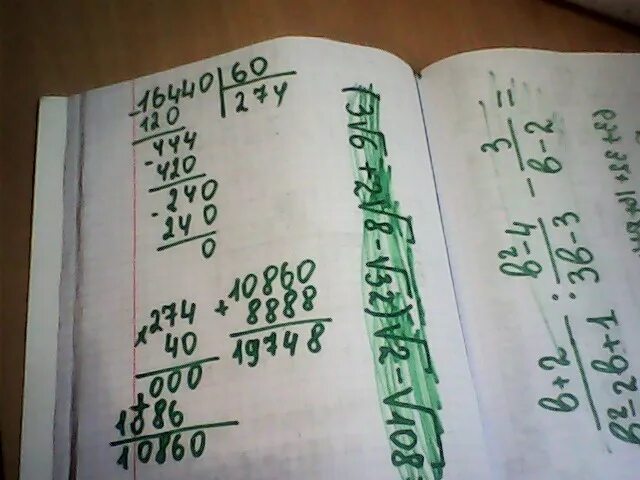 -16440 | 60
120 | 274
-444
420
-240
240
0
×274
40
+000
1086
10860
+10860
8888
19748
(3√6 + 2√8 - √32)√2 - √108
b+2 / b²-2b+1 : b²-4 / 3b-3 - 3 / b-2 =